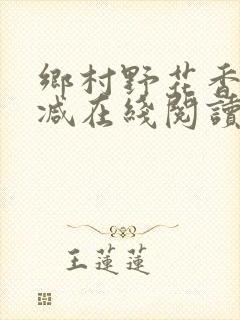 鄉村野花香
减在綫閱讀
王蓮蓮